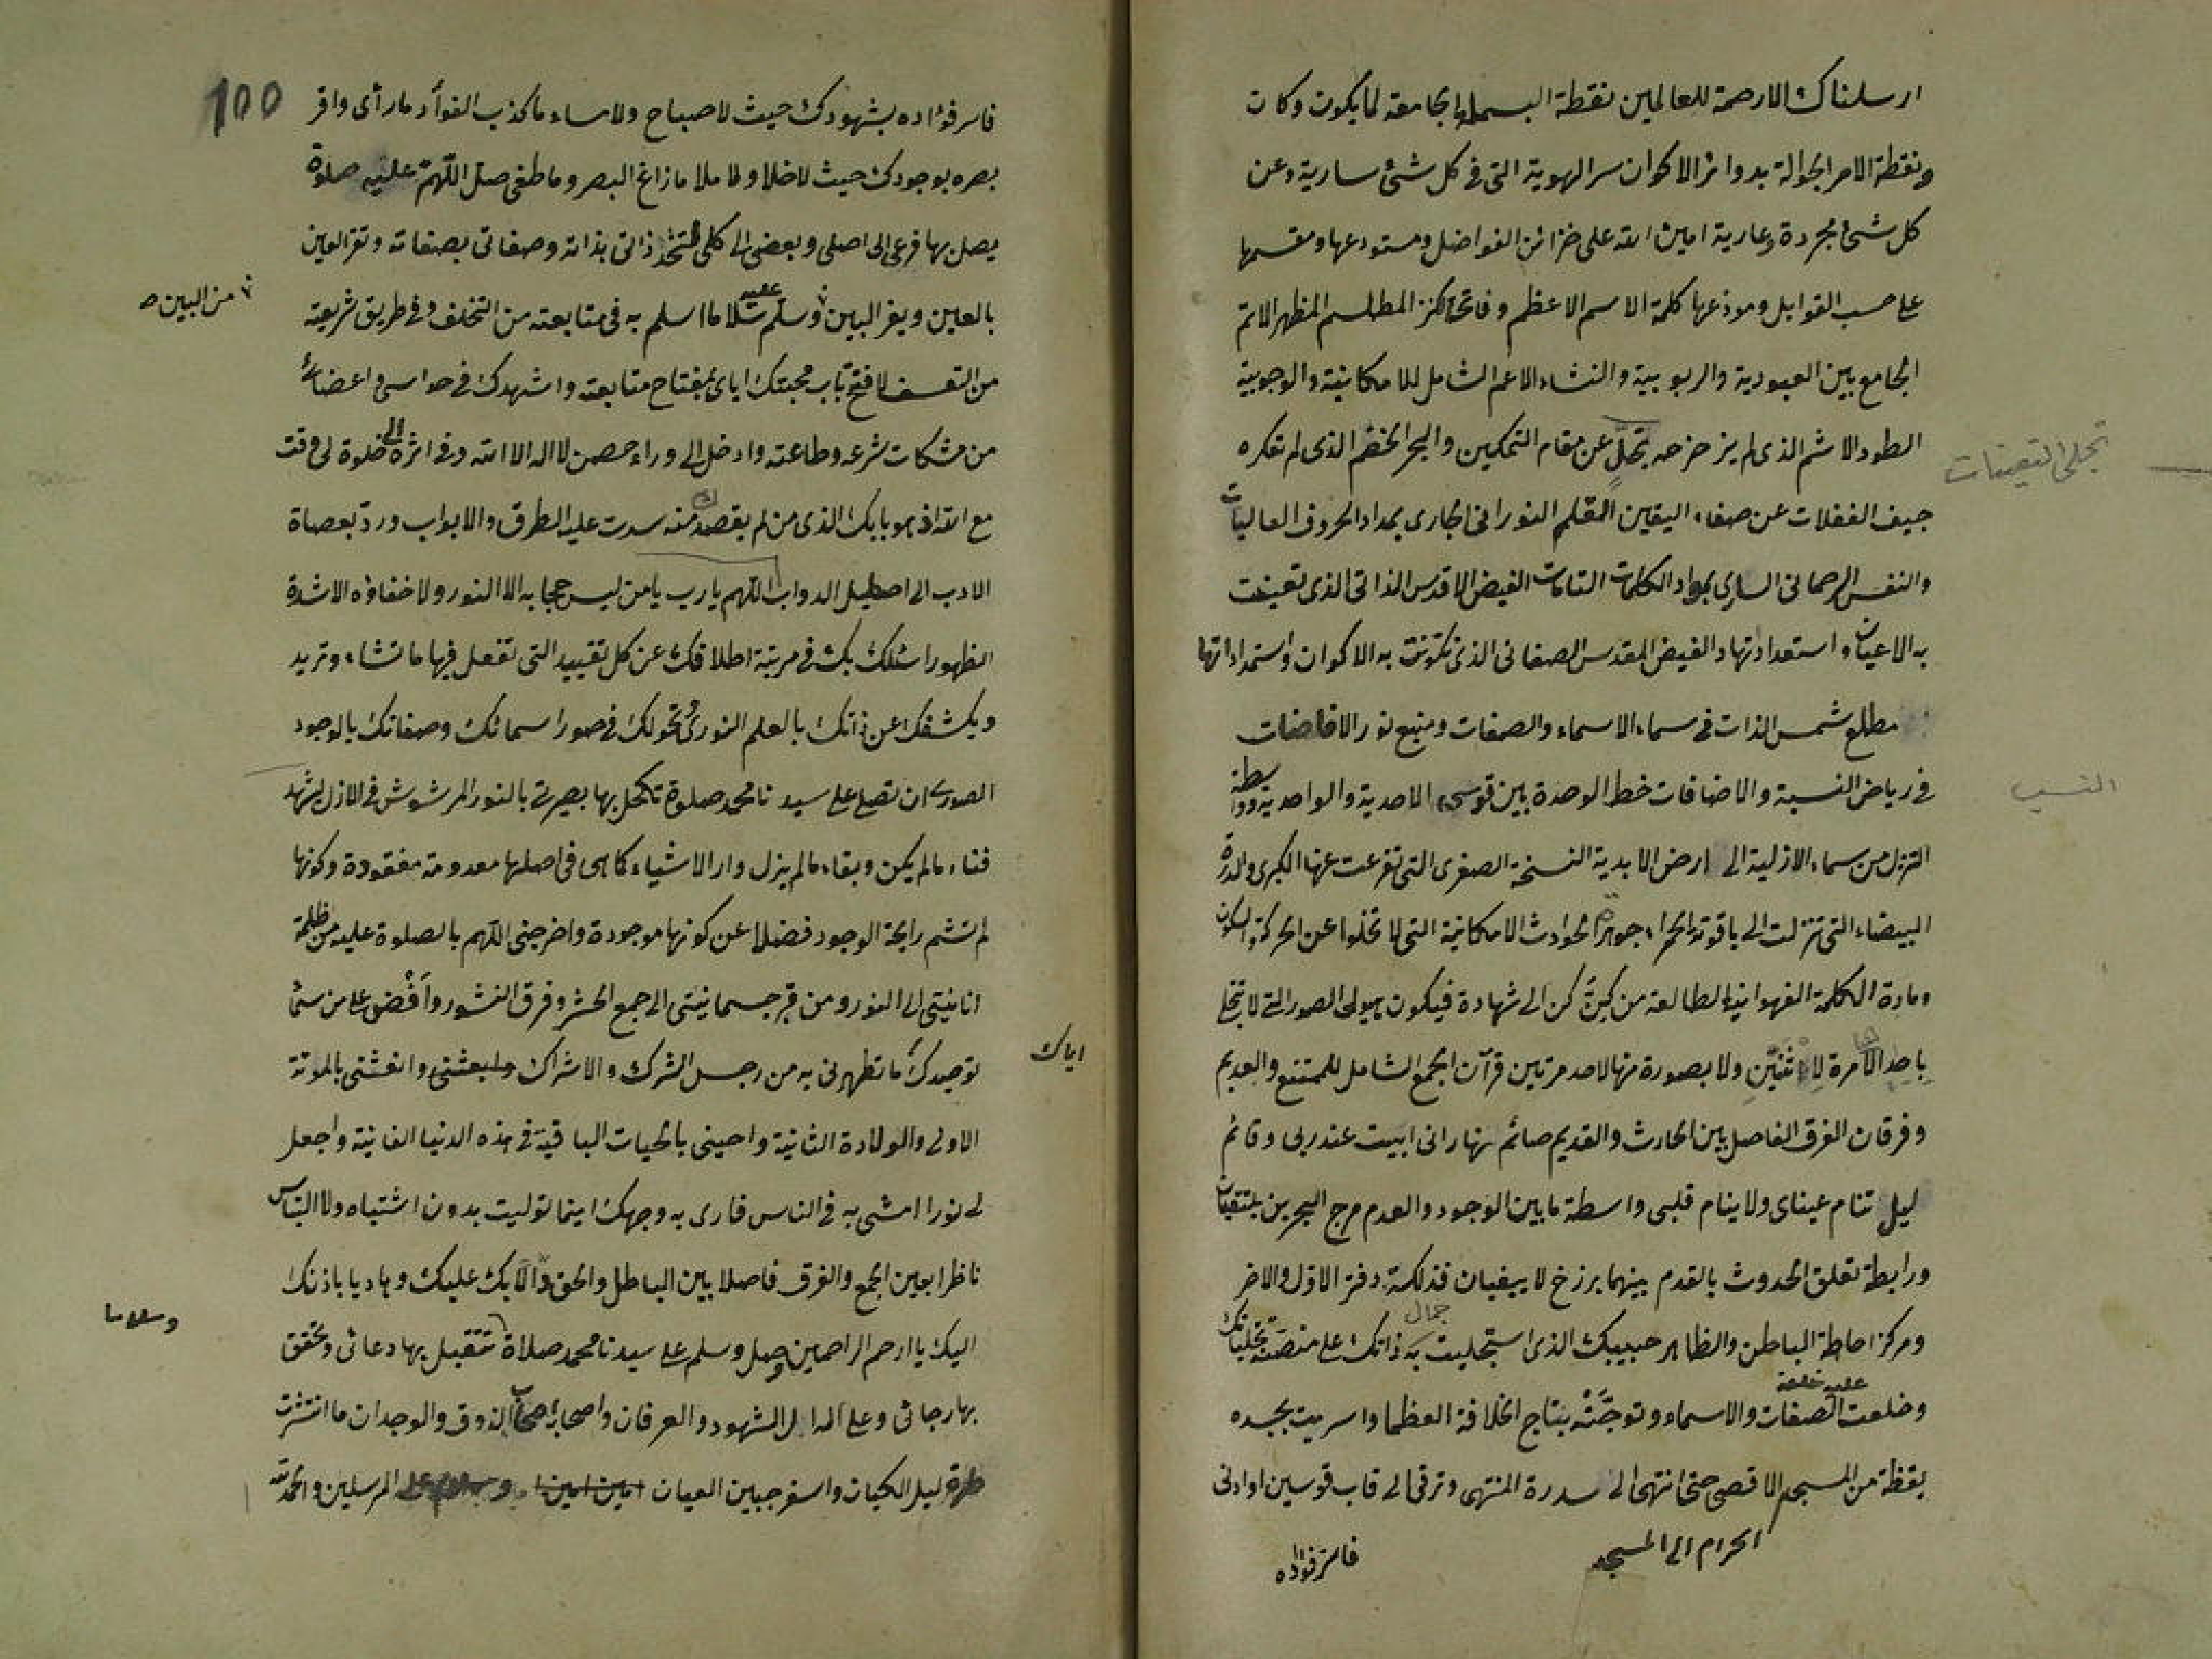 ارسلناك الا رحمة للعالمين نقطة البسملة الجامعة لما يكون وكان
ونقطة الامر الجوالة بدوائر الاكوان سر الهوية التى فى كل شئ سارية وعن
كل شئ مجردة وعارية امين الله على خزائن الفواضل ومستودعها ومقسمها
على حسب القوابل وموزعها كلمة الاسم الاعظم وفاتحة الكنز المطلسم المظهر الاتم
الجامع بين العبودية والربوبية والنشاء الاعم الشامل للامكانية والوجوبية
الطود الاشم الذى لم يزحزحه تجلٍّ عن مقام التمكين والبحر الخضم الذى لم تعكره
تجلى التعينات
جيف الغفلات عن صفاء اليقين القلم النورانى الجارى بمداد الحروف العاليات
والنفس الرحمانى السارى بمواد الكلمات التامات الفيض الاقدس الذاتى الذى تعينت
به الاعيان واستعداداتها والفيض المقدس الصفاتى الذى تكونت به الاكوان واستمداداتها
مطلع شمس الذات فى سماء الاسماء والصفات ومنبع نور الافاضات
فى رياض النسبة والاضافات خط الوحدة بين قوسى الاحدية والواحدية وواسطة
النسب
التنزل من سماء الازلية الى ارض الابدية النسخة الصغرى التى تفرعت عنها الكبرى والدرة
البيضاء التى تنزلت الى ياقوتة الحمراء جوهرة الحوادث الامكانية التى لا تخلوا عن الحركة والسكون
ومادة الكلمة الفهوانية الطالعة من كن الى شهادة فيكون هيولى الصور التى لا تتجلى
باحدها الا مرة لاثنين ولا بصورة منها لاحد مرتين قرآن الجمع الشامل للممتنع والعديم
وفرقان الفرق الفاصل بين الحادث والقديم صائم نهار انى ابيت عند ربى وقائم
ليل تنام عيناى ولا ينام قلبى واسطة ما بين الوجود والعدم مرج البحرين يلتقيان
ورابطة تعلق الحدوث بالقدم بينهما برزخ لا يبغيان فذلكة دفتر الاول والاخر
ومركز احاطة الباطن والظاهر حبيبك الذى استجليت به جمال ذاتك على منصة تجلياتك
وخلعت عليه خلعة الصفات والاسماء وتوجَّتْه بتاج الخلافة العظما واسريت بجسده
يقظة من المسجد الاقصى حتى انتهى الى سدرة المنتهى وترقى الى قاب قوسين او ادنى
الحرام الى المسجد
فاسر فؤاده
100
فاسر فؤاده بشهودك حيث لا صباح ولا مساء ما كذب الفؤاد ما رأى واقر
بصره بوجودك حيث لا خلا ولا ملا ما زاغ البصر وما طغى صل اللهم عليه صلوة
يصل بها فرعى الى اصلى وبعضى الى كلى لتتحد ذاتى بذاته وصفاتى بصفاته وتقر العين
بالعين ويفر البين وسلم عليه سلاما اسلم به فى متابعته من التخلف وفى طريق شريعته
من البين
من التعسف لافتح باب محبتك اياى بمفتاح متابعته واشهدك فى حواسى واعضائى
من مشكات شرعه وطاعته وادخل الى وراء حصن لا اله الا الله وفى اثره الى خلوة لى وقت
مع الله اذ هو بابك الذى من لم يقصدك منه سدت عليه الطرق والابواب ورد بعصاة
الادب الى اصطبل الدواب اللهم يا رب يا من ليس حجابه الا النور ولا خفاؤه الا شدة
الظهور اسئلك بك فى مرتبة اطلاقك عن كل تقييد التى تفعل فيها ما تشاء وتريد
وبكشفك عن ذاتك بالعلم النورى وتحولك فى صور اسمائك وصفاتك بالوجود
الصورى ان تصلى على سيدنا محمد صلوة تكحل بها بصيرتى بالنور المرشوش فى الازل لاشهد
فناء ما لم يكن وبقاء ما لم يزل وار الاشياء كما هى فى اصلها معدومة مفقودة وكونها
لم تشم رايحة الوجود فضلا عن كونها موجودة واخرجنى اللهم بالصلوة عليه من ظلمة
انانيتى الى النور ومن قبر جسمانيتى الى جمع الحشر وفرق النشور وأَفْض على من سماء
توحيدك ما تطهرنى به من رجس الشرك والاشراك وابعثنى وانعشنى بالموتة
اياك
الاولى والولادة الثانية واحينى بالحيات الباقية فى هذه الدنيا الفانية واجعل
لى نورا امشى به فى الناس فارى به وجهك اينما توليت بدون اشتباه ولا التباس
ناظرا بعين الجمع والفرق فاصلا بين الباطل والحق دالا بك عليك وهاديا باذنك
اليك يا ارحم الراحمين وصل وسلم على سيدنا محمد صلاة تتقبل بها دعائى وتحقق
وسلاما
بها رجائى وعلى اله ال الشهود والعرفان واصحابه اصحاب الذوق والوجدان ما انتشرت
طرة ليل الكيان واسفر جبين العيان امين امين وسلام على المرسلين والحمد لله